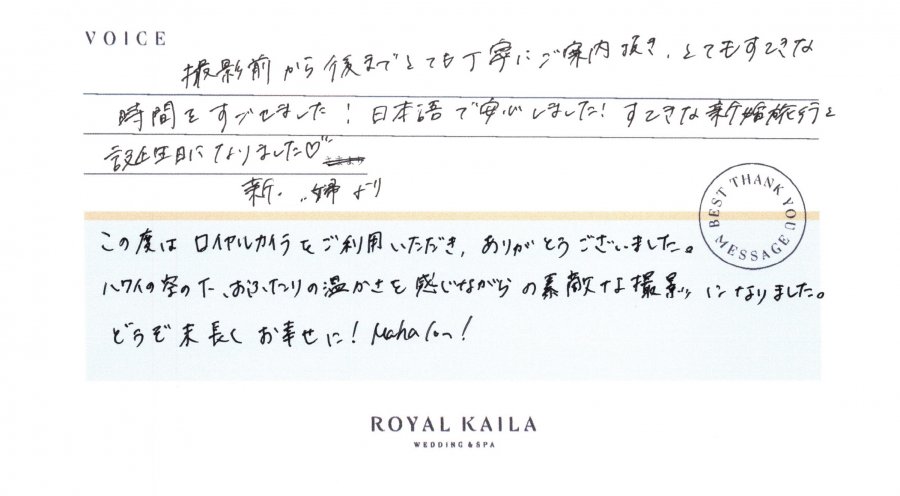 VOICE
撮影前から後までとても丁寧にご案内頂き、とてもすてきな
時間をすごせました！日本語で安心しました！すてきな新婚旅行と
誕生日になりました♡
新婦より
BEST THANK YOU MESSAGE
この度はロイヤルカイラをご利用いただき、ありがとうございました。
ハワイの空の下、おふたりの温かさを感じながらの素敵な撮影になりました。
どうぞ末長くお幸せに！Mahalo〜！
ROYAL KAILA
WEDDING & SPA